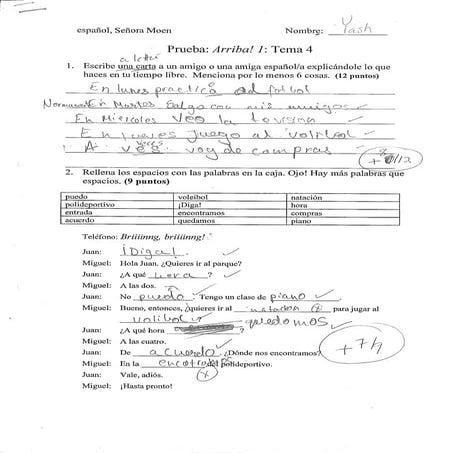 español, Señora Moen Nombre: Yash
Prueba: Arriba! 1: Tema 4
a letter
1. Escribe una carta a un amigo o una amiga español/a explicándole lo que
haces en tu tiempo libre. Menciona por lo menos 6 cosas. (12 puntos)
En lunes practico el futbol
En Martes Salgo con mis amigos
En Miercoles veo la
En jueves Juego al volibol
A veces voy de compras
/12
2. Rellena los espacios con las palabras en la caja. Ojo! Hay más palabras que
espacios. (9 puntos)
puedo voleibol natación
polideportivo ¡Diga! hora
entrada encontramos compras
acuerdo quedamos piano
Teléfono: Briiiinng, briiiinng!
Juan: ¡Diga!
Miguel: Hola Juan. ¿Quieres ir al parque?
Juan: ¿A qué hora ?
Miguel: A las dos.
Juan: No puedo. Tengo un clase de piano
Miguel: Bueno, entonces, ¿quieres ir al natacion para jugar al
volibol ?
Juan: ¿A qué hora quedamos
Miguel: A las cuatro.
Juan: De acuerdo. ¿Dónde nos encontramos?
Miguel: En la del polideportivo.
Juan: Vale, adiós.
Miguel: ¡Hasta pronto!
+7/9